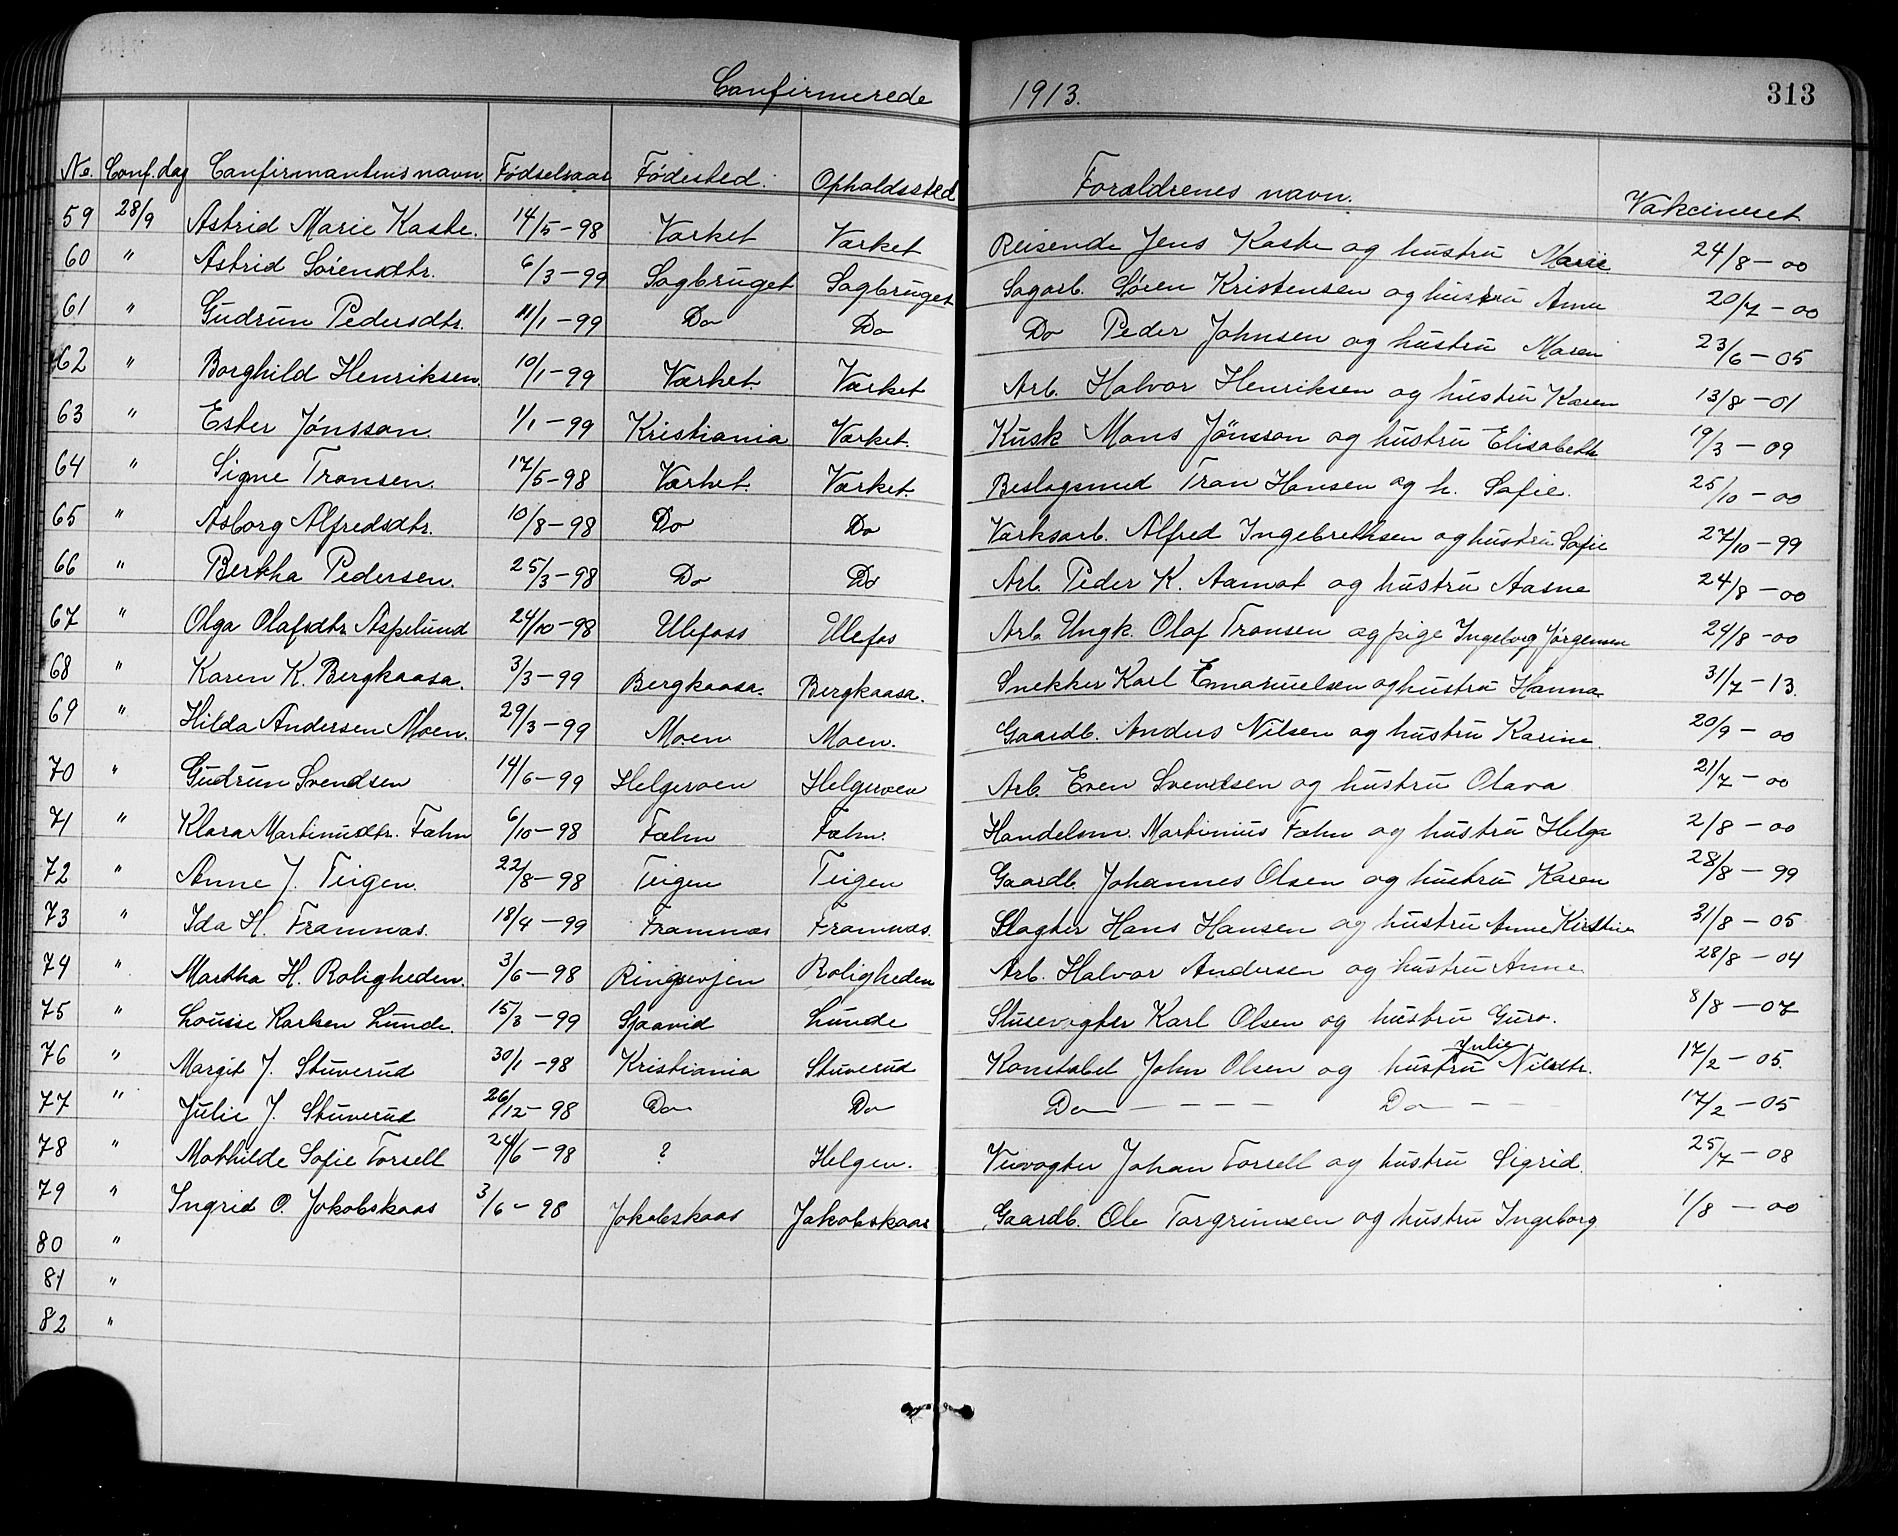 Confirmerede 1913. 313
No. Conf.dag Confirmantens navn. Fødselsaar Fødested. Opholdssted Foræeldrenes navn. Vakcineret
59 28/9 Astrid Marie Kaste. 14/5-98 Værket Værket Reisende Jens Kaste og hustru Marie 24/8-00
60 " Astrid Sørensdtr. 6/3-99 Sagbruget Sagbruget Sagarb. Søren Kristensen og hustru Anne 20/7-00
61 " Gudrun Pedersdtr. 11/1-99 Do Do Do Peder Johnsen og hustru Maren 23/6-05
62 " Borghild Henriksen. 10/1-99 Værket. Værket Arb. Halvor Henriksen og hustru Karen 13/8-01
63 " Ester Jønsson. 1/1-99 Kristiania Værket. Kusk Mons Jönsson og hustru Elisabeth 19/3-09
64 " Signe Transen. 17/5-98 Værket. Værket. Beslagsmed Tran Hansen og h. Sofie. 25/10-00
65 " Asborg Alfredsdtr. 10/8-98 Do Do Værksarb. Alfred Ingebrethsen og hustru Sofie 27/10-99
66 " Bertha Pedersen. 25/3-98 Do Do Arb. Peder K. Aamot og hustru Aasne 24/8-00
67 " Olga Olafsdtr. Aspelund 24/10-98 Ulefoss Ulefos Arb. Ungk. Olaf Transen og pige Ingeborg Jørgensen 24/8-00
68 " Karen K. Bergkaasa. 3/3-99 Bergkaasa. Bergkaasa. Snekker Karl Emanuelsen og hustru Hanna 31/7-13.
69 " Hilda Andersen Moen. 29/3-99 Moen Moen. Gaardb. Anders Nilsen og hustru Karine. 20/9-00
70 " Gudrun Svendsen 14/6-99 Helgeroen Helgeroen Arb. Even Svendsen og hustru Olava 21/7-00
71 " Klara Martinusdtr. Fæhn 6/10-98 Fæhn Fæhn. Handelsm. Martinius Fæhn og hustru Helga 2/8-00
72 " Anne J. Teigen. 22/8-98 Teigen Teigen Gaardb. Johannes Olsen og hustru Karen 28/8-99
73 " Ida H. Framnæs. 18/4-99 Framnæs Framnæs. Slagter Hans Hansen og hustru Anne Kirstine 31/8-05
74 " Martha H. Roligheden. 3/6-98 Ringsevjen Roligheden Arb. Halvor Andersen og hustru Anne 28/8-04
75 " Louise Karlsen Lunde. 15/3-99 Sjaavid Lunde Slusevogter Karl Olsen og hustru Guro. 8/8-07
76 " Margit J. Stuverud 30/1-98 Kristiania Stuverud Konstabel John Olsen og hustru Julie Nilsdtr. 17/2-05.
77 " Julie J. Stuverud 26/12-98 Do Do Do - - - - Do - - 17/2-05
78 " Mathilde Sofie Torsell 24/6-98 ? Helgen. Veivogter Johan Torsell og hustru Sigrid. 25/7-08
79 " Ingrid O. Jakobskaas 3/6-98 Jakobskaas Jakobskaas Gaardb. Ole Torgrimsen og hustru Ingeborg 1/8-00
80 "
81 "
82 "